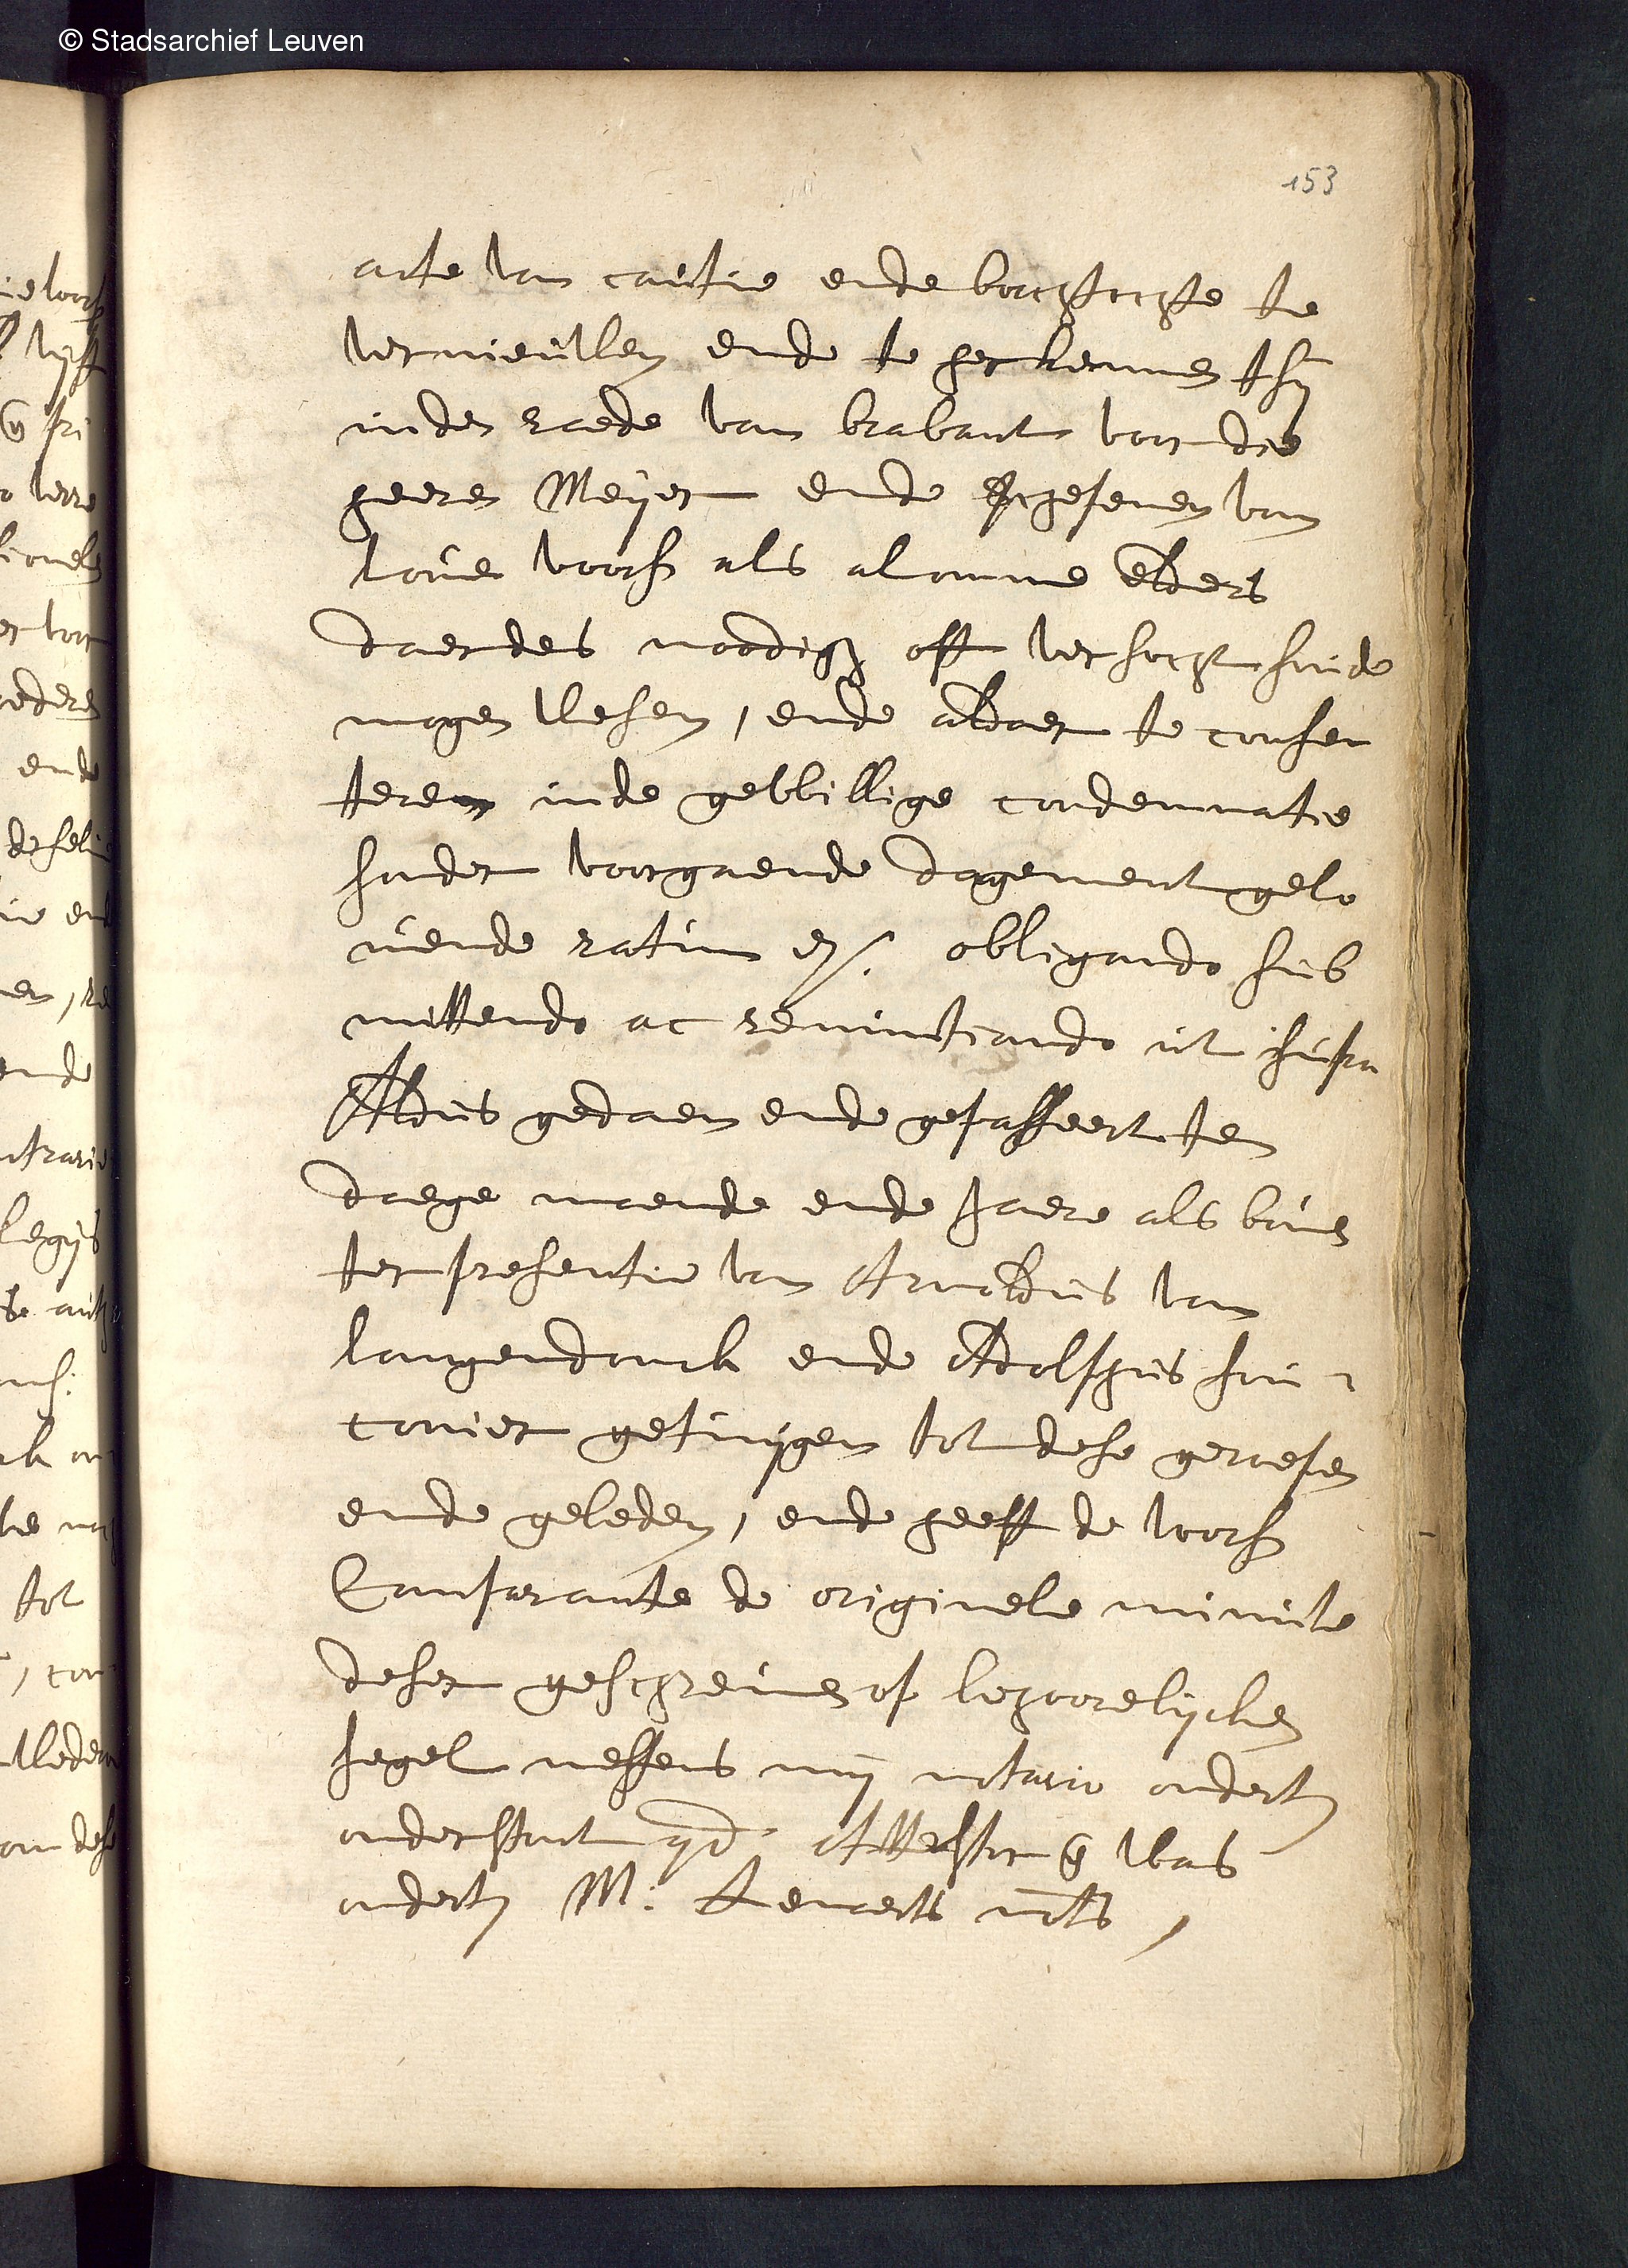 © Stadsarchief Leuven
153
acte van cautie ende borchtochte te
vernieuwen ende te herkennen tsy
inden raede van brabant voor die
heeren Meyer ende schepenen van
loven voors als alomme elders
daer des noodich oft versocht soude
mogen wesen, ende aldaer te consen
teren inde gewillige condemnatie
sonder voorgaende dagement gelo
vende ratum etc. obligando sub
mittendo ac renuntiando ut supra
Aldus gedaen ende gepasseert ten
daege maende ende jaere als boven
ter presentie van Arnoldus van
langendonck ende Adolphus
getuygen tot dese geroepen
ende gebeden, ende heeft de voors
Comparante de originele minute
deser geschreven op behoorelycken
segel neffens my notario onderteeckent
onderstont quod Attestor ende was
onderteeckent M. Lenaerts nots